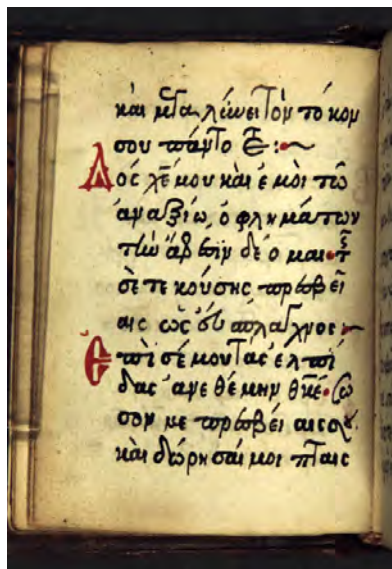 και μ̅τα λέωσιν τὸν τό κον
σου πάντο
Δός λέ μου και ἐ μοὶ τῶ
ἀναξίω, ὀ φλη μά των
τὴν ἄφεσιν δέ ο μαι·
σὲ τε κούσης πρεσβεί
αις ὡς εὔ σπλαγχνος
Ἐπὶ σέ μου τὰς ἐλ πί
δας ἀνε θέ μην θκε· σῶ
σον με πρεσβεί αις σου.
και δώρη σαί μοι πταισ